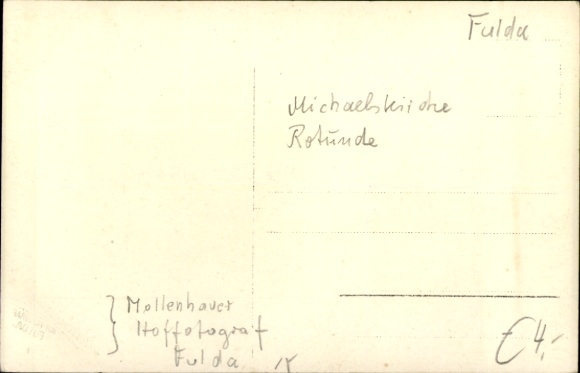 Fulda
Michaelskirche
Rotunde
Mollenhauer
Hoffotograf
Fulda
€ 4,-